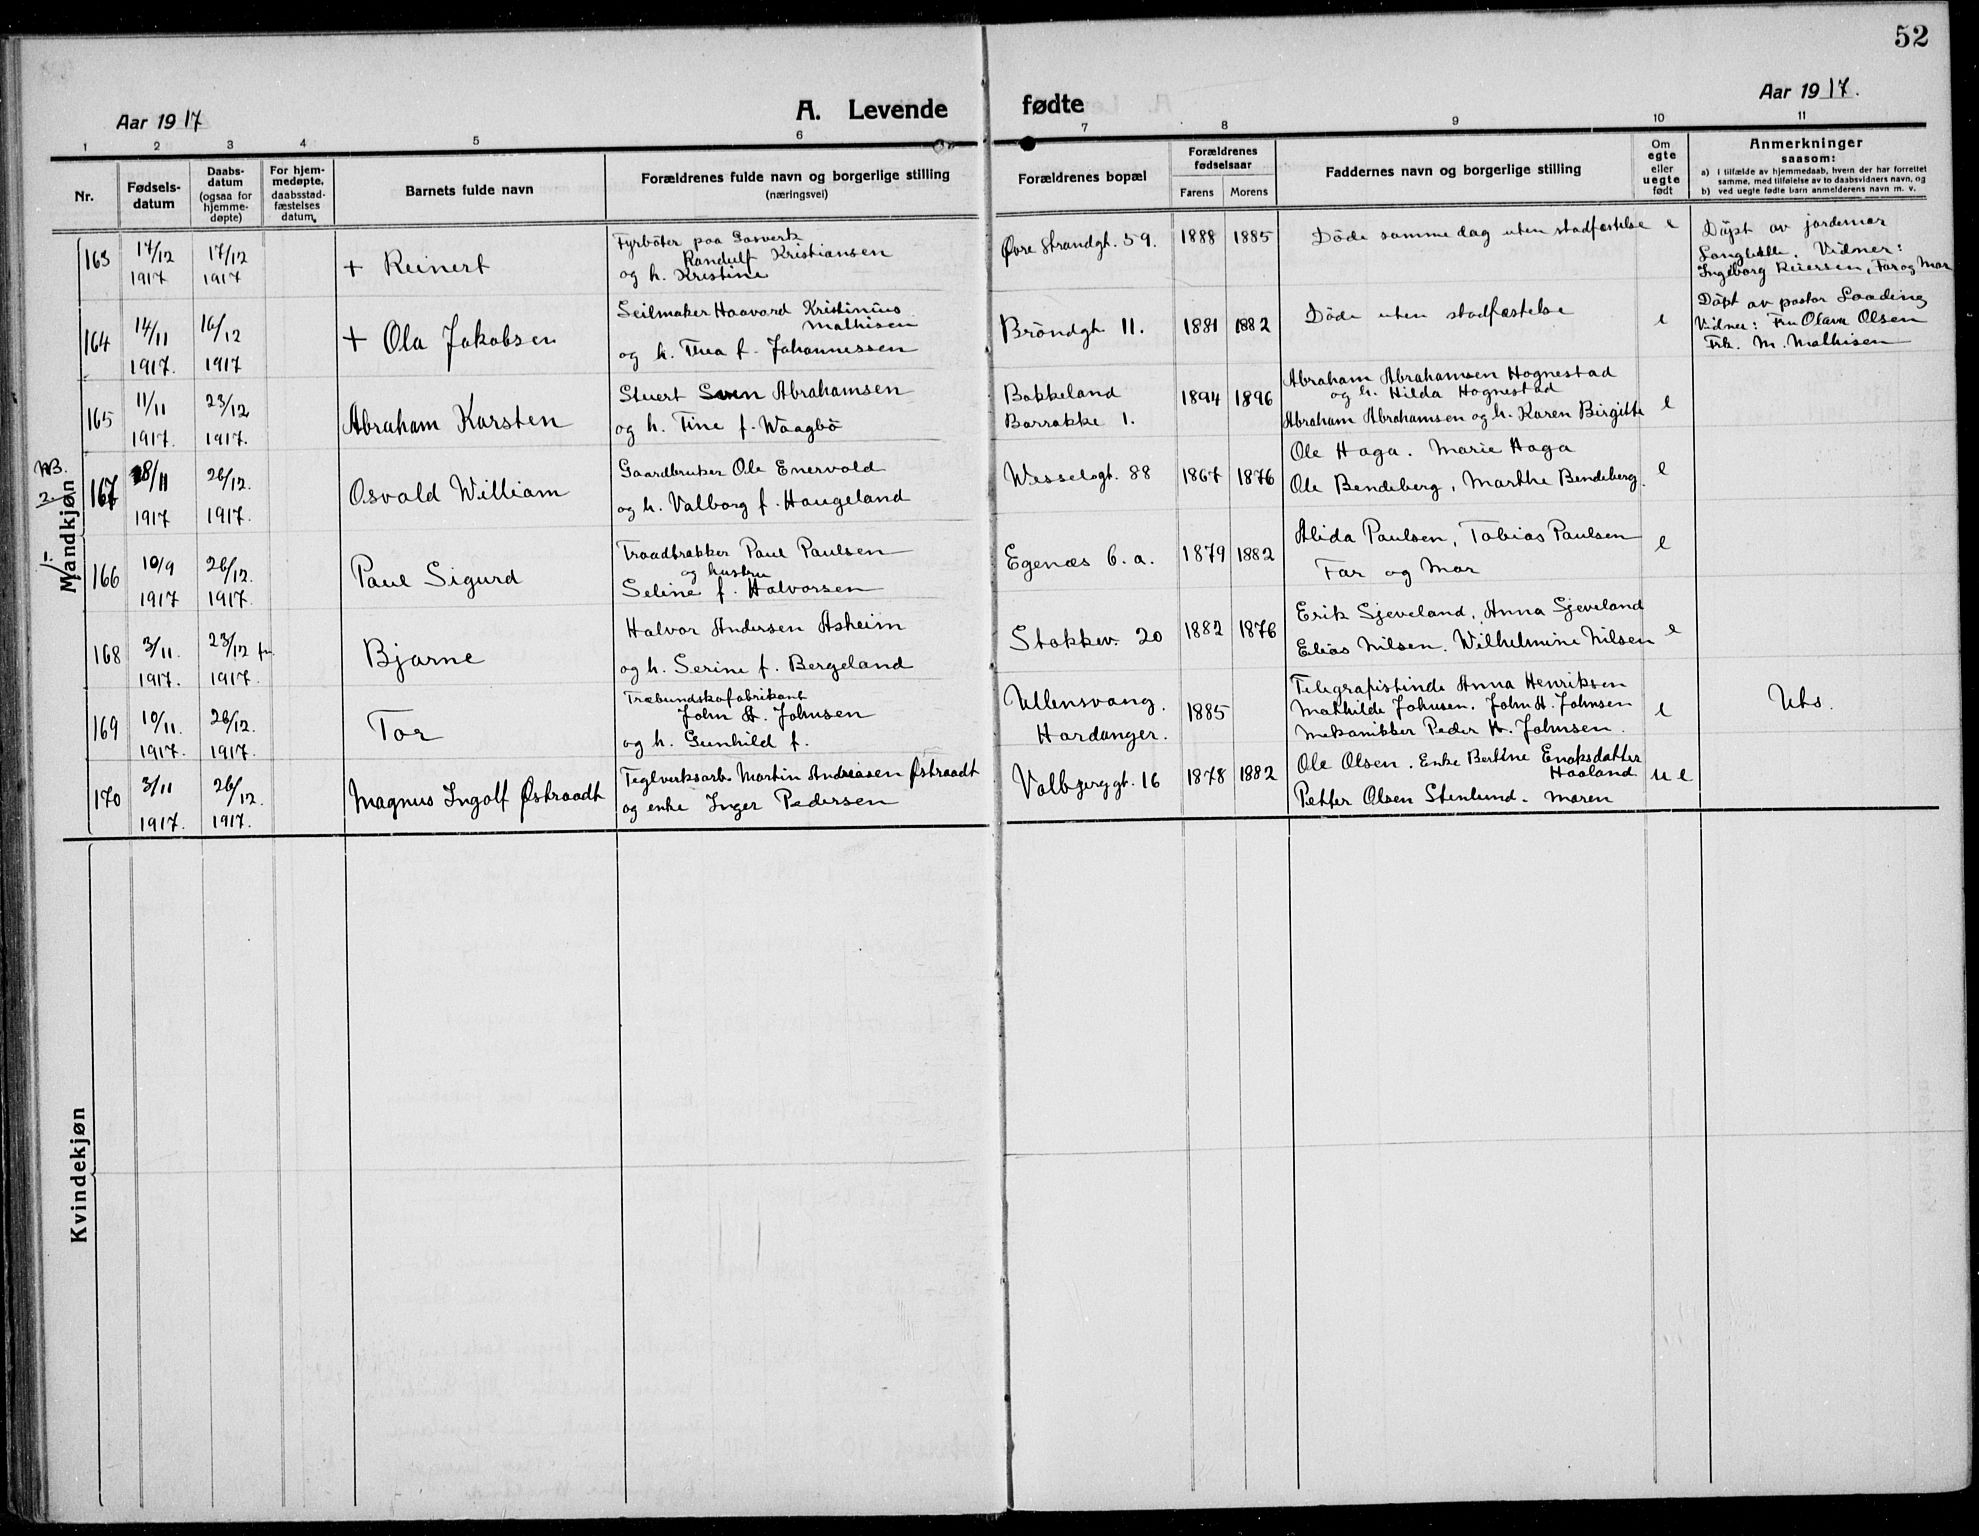 52
Aar 1917
A. Levende fødte
Aar 1917.
1 2 3 4 5 6 7 8 9 10 11
Nr.
Fødsels-
datum
Daabs-
datum
(ogsaa for
hjemme-
døpte)
For hjem-
medøpte,
daabsstad-
fæstelses
datum.
Barnets fulde navn
Forældrenes fulde navn og borgerlige stilling
(næringsvei)
Forældrenes bopæl
Forældrenes
fødselsaar
Farens Morens
Faddernes navn og borgerlige stilling
Om
egte
eller
uegte
født
Anmerkninger
saasom:
a) i tilfælde av hjemmedaab, hvem der har forrettet
samme, med tilføielse av to daabsvidners navn, og
b) ved uegte fødte barn anmelderens navn m. v.
Mandkjøn
163
17/12
1917
17/12
1917
+ Reinert
Fyrböter paa Gasverk
Randulf Kristiansen
og h. Kristine
Øvre Strandgt. 59.
1888 1885
Döde samme dag uten stadfæstelse
e
Döpt av jordemor
Vidner:
Ingeborg Reiersen, Far og Mor
164
14/11
1917.
16/12
1917
+ Ola Jakobsen
Seilmaker Haavard Kristinius
Mathisen
og h. Thea f. Johannessen
Bröndgt. 11.
1881 1882
Döde uten stadfæstelse
e
Döpt av pastor Gaading
Vidner: Fru Olava Olsen
Frk. M. Mathisen
165
11/11
1917.
23/12
1917.
Abraham Karsten
Stuert Sven Abrahamsen
og h. Tine f. Waagbö
Bakkeland
Barrakke 1.
1894 1896
Abraham Abrahamsen Hognestad
og h. Hilda Hognestad
Abraham Abrahamsen og h. Karen Birgitte
e
NB.
2.
167
8/11
1917
26/12.
1917.
Osvald William
Gaardbruker Ole Enervold
og h. Valborg f. Haugeland
Wesselsgt. 88
1867 1876
Ole Haga. Marie Haga
Ole Bendeberg, Marthe Bendeberg.
e
1-
166
10/9
1917
26/12.
1917.
Paul Sigurd
Traadtrækker Paul Paulsen
og hustru
Seline f. Halvorsen
Egenæs 6. a.
1879 1882
Alida Paulsen, Tobias Paulsen
Far og Mor
e
168
3/11.
1917.
23/12 fm.
1917.
Bjarne
Halvor Andersen Asheim
og h. Serine f. Bergeland
Stokkev. 20
1882 1876
Erik Gjeveland, Anna Gjeveland
Elias Nilsen. Wilhelmine Nilsen
e
169
10/11.
1917.
26/12.
1917.
Tor
Træbundskofabrikant
John H. Johnsen
og h. Gunhild f.
Ullensvang.
Hardanger.
1885
Telegrafistinde Anna Henriksen
Mathilde Johnsen. John H. Johnsen
Mekanikker Peder H. Johnsen.
e
Uts.
170
3/11
1917.
26/12.
1917.
Magnus Ingolf Østraadt
Teglverksarb. Martin Andreasen Østraadt
og enke Inger Pedersen
Valbjerggt. 16
1878 1882
Ole Olsen. Enke Bertine Enoksdatter
Haaland
Petter Olsen Stenlund. Moren
u e
Kvindekjøn